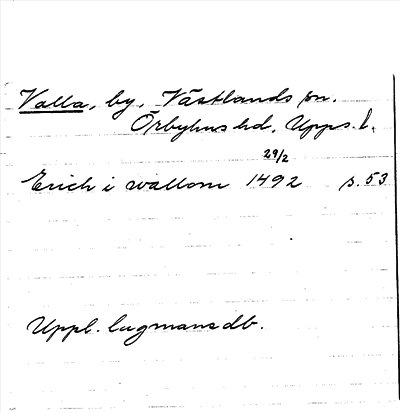 Valla, by, Västlands sn.
Örbyhus hd, Upps. l.
29/2
Erich i wallom 1492 s. 53
Uppl. lagmansdb.